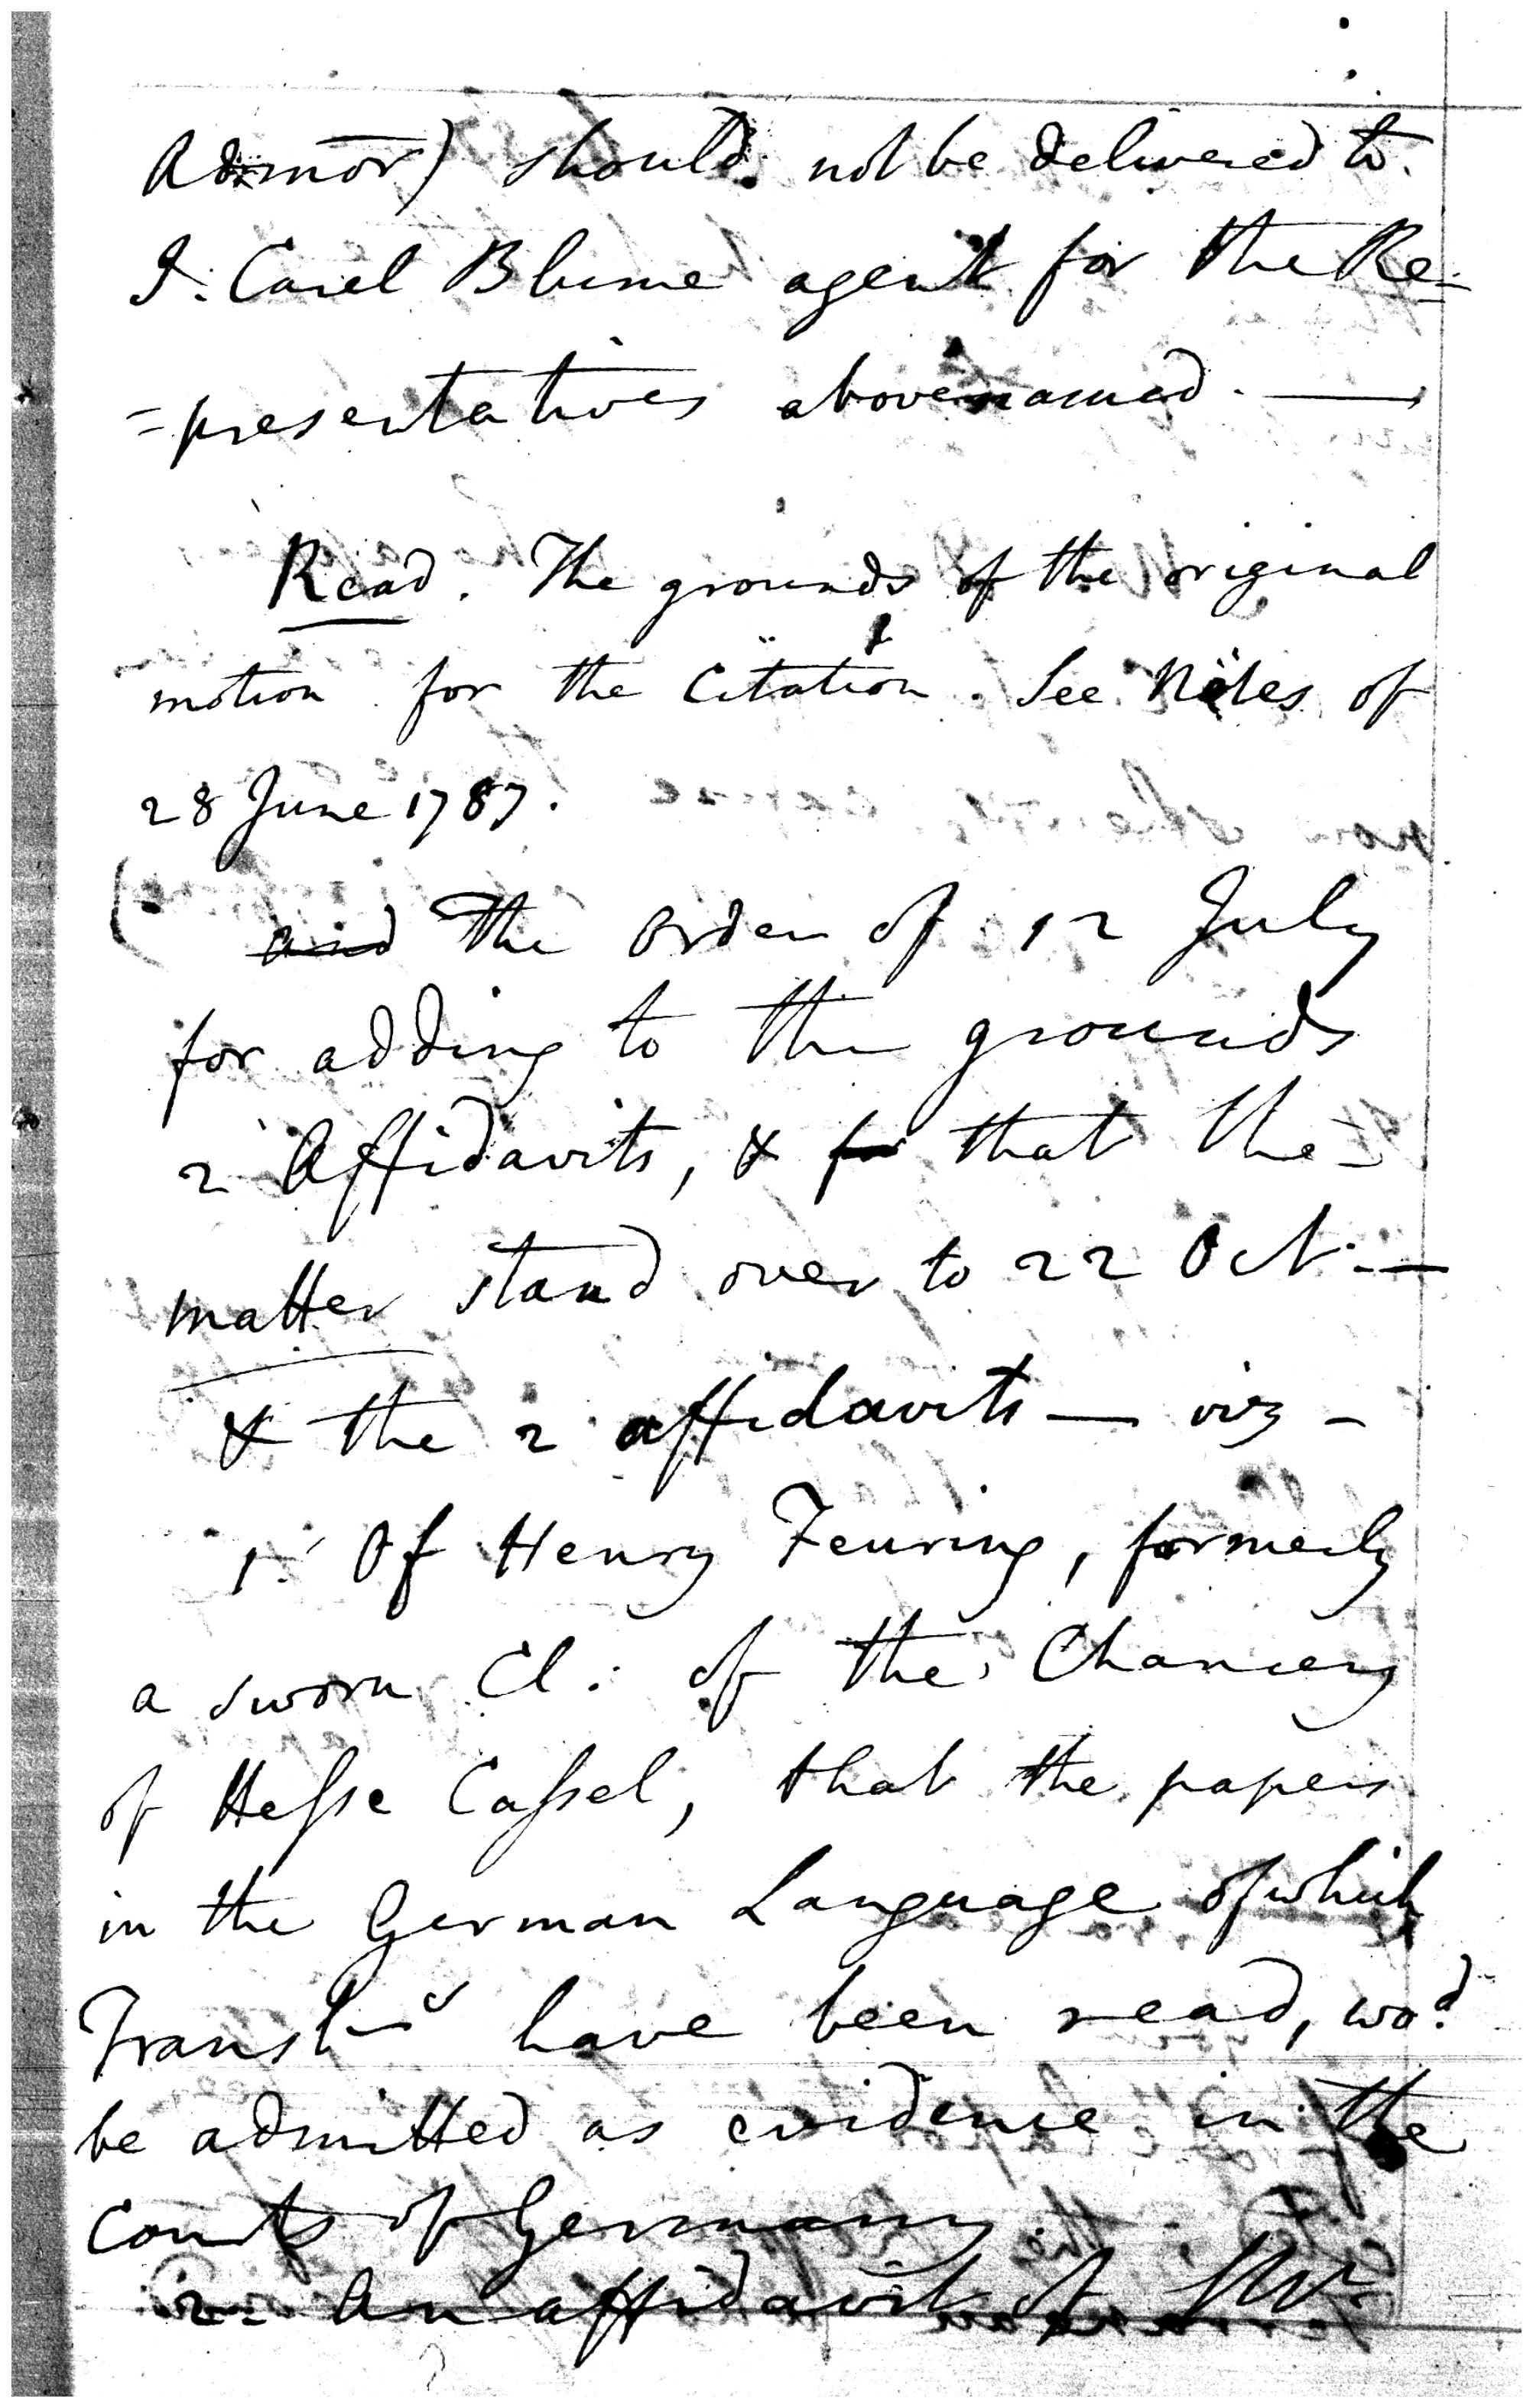 Admor) should not be delivered to
J. Carel Blume agent for the Re=
=presentatives abovenamed. —
Read. The grounds of the original
motion for the Citation. See Notes of
28 June 1787.
and The Order of 12 July
for adding to the grounds
2 Affidavits, & for that the
matter stand over to 22 Oct. —
& the 2 affidavits — viz —
1. Of Henry Feuring, formerly
a sworn Cl: of the Chancery
of Hesse Cassel, that the papers
in the German Language of which
Transl.ns have been read, wo.d
be admitted as evidence in the
Courts of Germany.
2. An affidavit of Mr